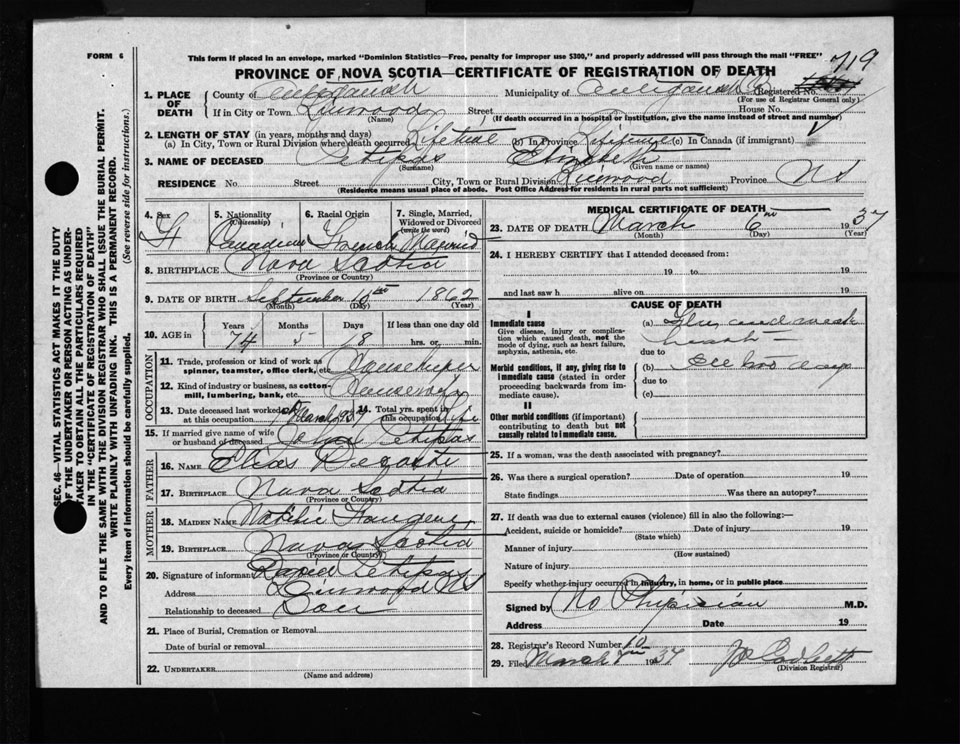 FORM 6
This form if placed in an envelope, marked "Dominion Statistics—Free, penalty for improper use $300," and properly addressed will pass through the mail "FREE"
719
PROVINCE OF NOVA SCOTIA—CERTIFICATE OF REGISTRATION OF DEATH
1. PLACE OF DEATH
County of Antigonish Municipality of Antigonish Registered No.
(For use of Registrar General only)
If in City or Town Linwood Street House No.
(Name) (If death occurred in a hospital or institution, give the name instead of street and number)
2. LENGTH OF STAY (in years, months and days)
(a) In City, Town or Rural Division where death occurred Lifetime (b) In Province Lifetime (c) In Canada (if immigrant)
3. NAME OF DECEASED Petipas Elizabeth
(Surname) (Given name or names)
RESIDENCE No. Street City, Town or Rural Division Linwood Province N S
(Residence means usual place of abode. Post Office Address for residents in rural parts not sufficient)
4. Sex F
5. Nationality (Citizenship) Canadian
6. Racial Origin French
7. Single, Married, Widowed or Divorced (write the word) Married
8. BIRTHPLACE Nova Scotia
(Province or Country)
9. DATE OF BIRTH September 1862
(Month) (Day) (Year)
10. AGE in Years Months Days If less than one day old
74 5 hrs. or min.
OCCUPATION
11. Trade, profession or kind of work as spinner, teamster, office clerk, etc. Housekeeper
12. Kind of industry or business, as cotton-mill, lumbering, bank, etc.
13. Date deceased last worked at this occupation March 1937 14. Total yrs. spent in this occupation Life
15. If married give name of wife or husband of deceased John Petipas
FATHER
16. NAME Elias
17. BIRTHPLACE Nova Scotia
(Province or Country)
MOTHER
18. MAIDEN NAME
19. BIRTHPLACE Nova Scotia
(Province or Country)
20. Signature of informant Petipas
Address Linwood NS
Relationship to deceased Son
21. Place of Burial, Cremation or Removal
Date of burial or removal
22. UNDERTAKER
(Name and address)
MEDICAL CERTIFICATE OF DEATH
23. DATE OF DEATH March 6th 1937
(Month) (Day) (Year)
24. I HEREBY CERTIFY that I attended deceased from:
19 to 19
and last saw h alive on 19
CAUSE OF DEATH
I
Immediate cause
Give disease, injury or complication which caused death, not the mode of dying, such as heart failure, asphyxia, asthenia, etc.
(a) Flu and weak heart
due to
Morbid conditions, if any, giving rise to immediate cause (stated in order proceeding backwards from immediate cause).
(b)
due to
(c)
II
Other morbid conditions (if important) contributing to death but not causally related to immediate cause.
25. If a woman, was the death associated with pregnancy?
26. Was there a surgical operation? Date of operation 19
State findings Was there an autopsy?
27. If death was due to external causes (violence) fill in also the following:—
Accident, suicide or homicide? Date of injury 19
(State which)
Manner of injury
(How sustained)
Nature of injury
Specify whether injury occurred in industry, in home, or in public place
Signed by No Physician M.D.
Address Date 19
28. Registrar's Record Number 10
29. Filed March 1937
(Division Registrar)
SEC. 46—VITAL STATISTICS ACT MAKES IT THE DUTY
OF THE UNDERTAKER OR PERSON ACTING AS UNDER-
TAKER TO OBTAIN ALL THE PARTICULARS REQUIRED
IN THE "CERTIFICATE OF REGISTRATION OF DEATH"
AND TO FILE THE SAME WITH THE DIVISION REGISTRAR WHO SHALL ISSUE THE BURIAL PERMIT.
WRITE PLAINLY WITH UNFADING INK. THIS IS A PERMANENT RECORD.
Every item of Information should be carefully supplied. (See reverse side for instructions.)